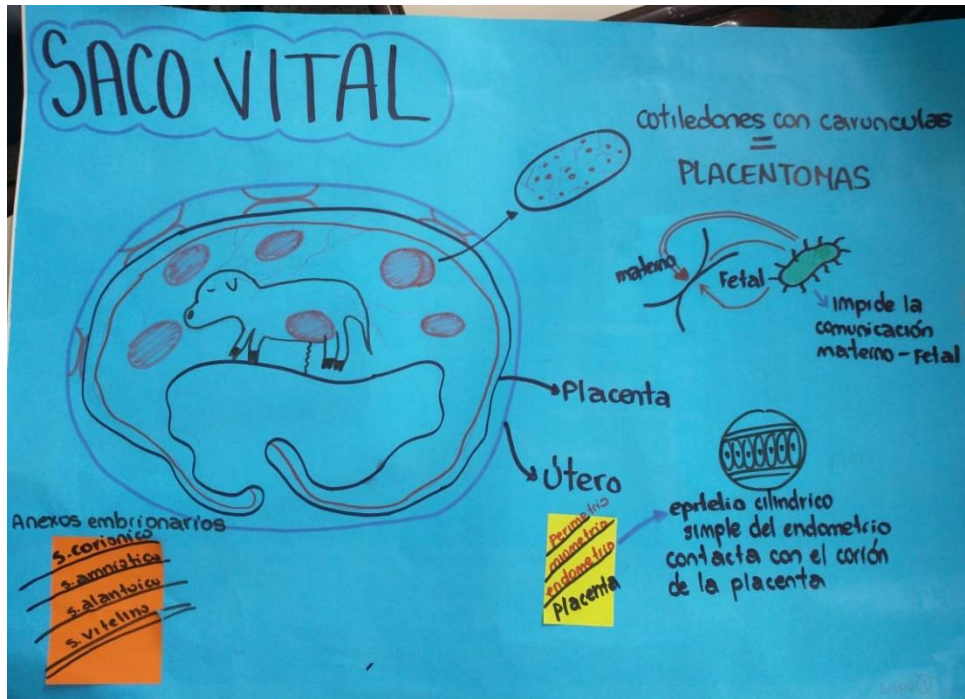 SACO VITAL
cotiledones con carunculas
=
PLACENTOMAS
materno
Fetal
Impide la
comunicación
materno - Fetal
Placenta
Útero
perimetrio
miometrio
endometrio
placenta
epitelio cilíndrico
simple del endometrio
contacta con el corión
de la placenta
Anexos embrionarios
s. corionico
s. amniotico
s. alantoico
s. vitelino